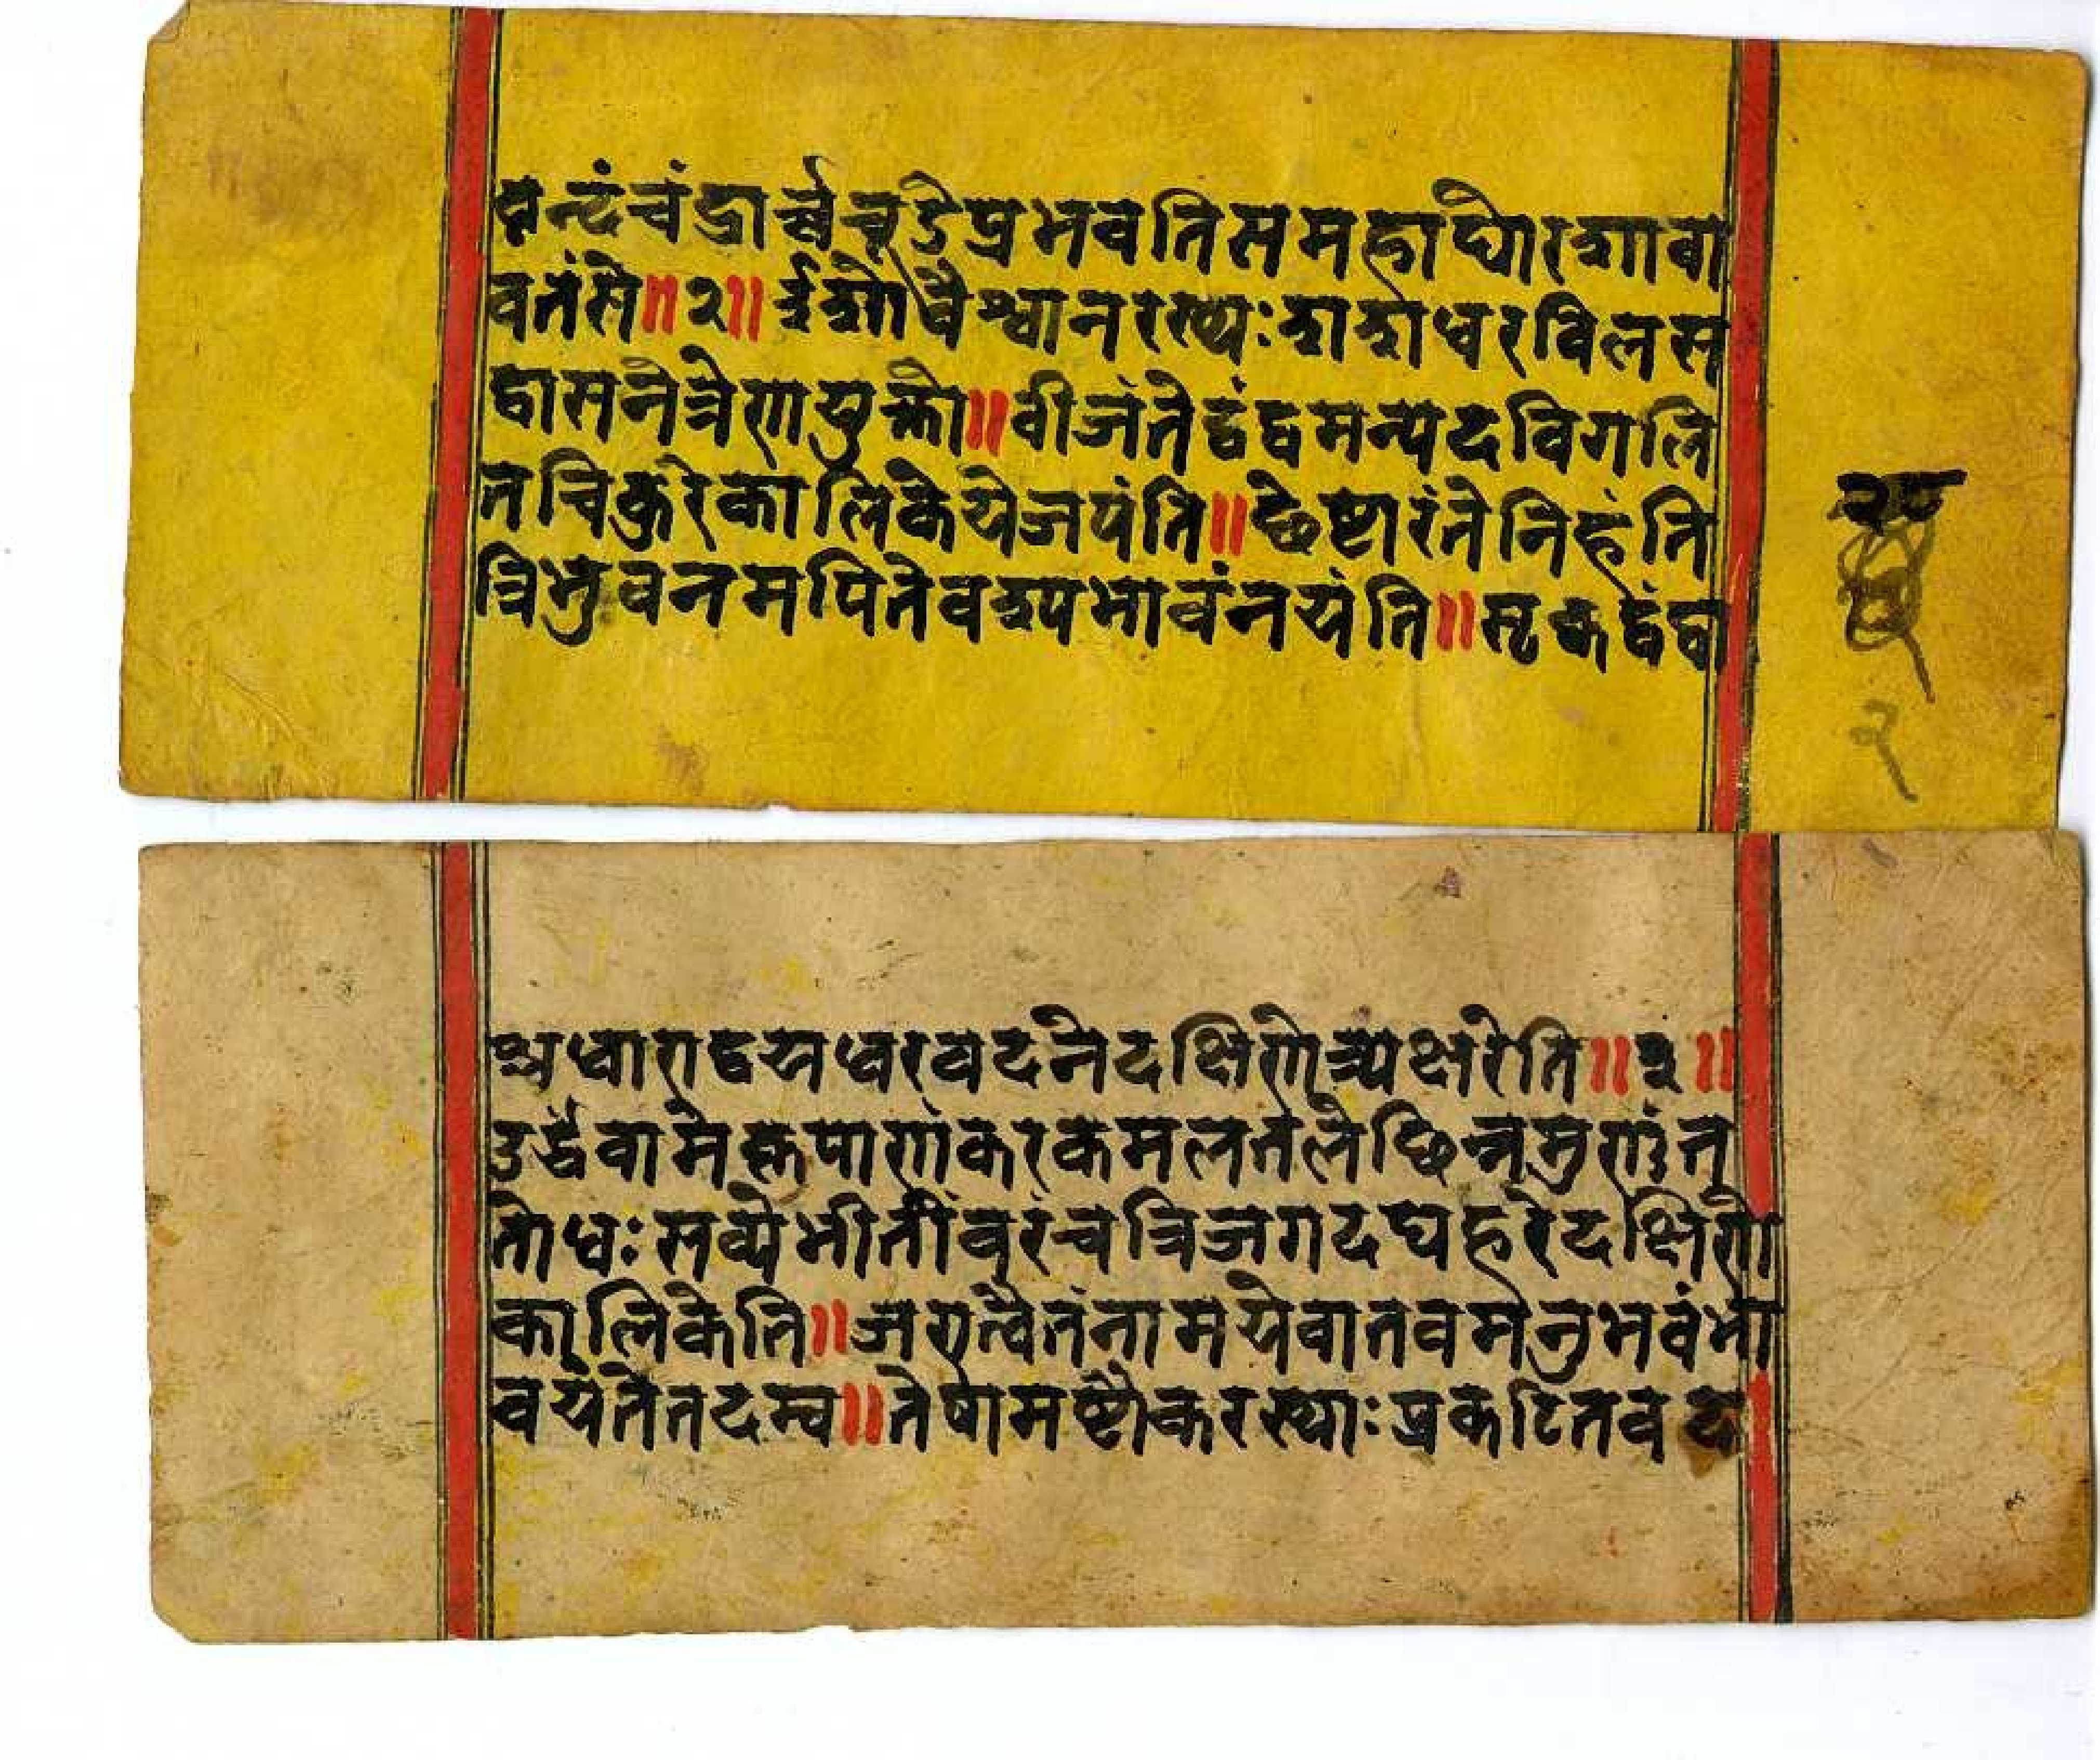 वन्दंचंद्रार्द्धचूडेप्रभवतिसमहाघोरशावा
वतंसे॥२॥ईशोवैश्वानरस्थःशशधरविलस
द्वामनेत्रेणयुक्तो॥वीजंतेद्वंद्वमन्यदविगलि
तचिकुरेकालिकेयेजपंति॥द्वेष्टारंतेनिहंति
त्रिभुवनमपितेवश्यभावंनयंति॥सृकद्वंद्वा
२८
२
श्रधाराद्वयधरवदनेदक्षिणेत्र्यक्षरेति॥३॥
उर्द्धेवामेकृपाणंकरकमलतलेछिन्नमुण्डंत
तोधःसव्येभीतींवरंचत्रिजगदघहरेदक्षिणे
कालिकेति॥जप्त्वैतंनामयेवातवमनुभवंभा
वयंतेतदम्ब॥तेषामष्टौकरस्थाःप्रकटितवद